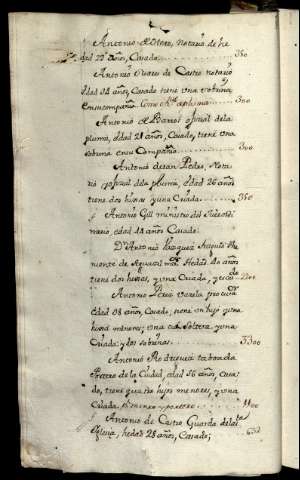 Antonio de Otero, Notario de he
dad 22 años, Casado 350
Antonio Suarez de Castro notario
Edad 34 años, Casado tiene una sobrina
en su compañia 300
Antonio de Barros oficial de la
pluma, edad 21 años, Casado, tiene una
sobrina en su Compañia 300
Antonio de san Pedro, Nota
rio, y oficial de la pluma, edad 26 años
tiene dos hijas y una Criada 350
Antonio Gill ministro del
edad 44 años Casado
Dn Antonio Vazquez
monte de hedad 40 años
tiene dos hijos, y una Criada
Antonio Perez Varela procur
edad 38 años, Casado; tiene un hijo y una
hija menores; una Soltera, y una
Criada y dos sobrinas 3300
Antonio Rodriguez
de la Ciudad, edad 56 años, Casa
do, tiene quatro hijos menores, y una
Criada 1100
Antonio de Castro Guarda de la
Iglesia, hedad 28 años, Casado,